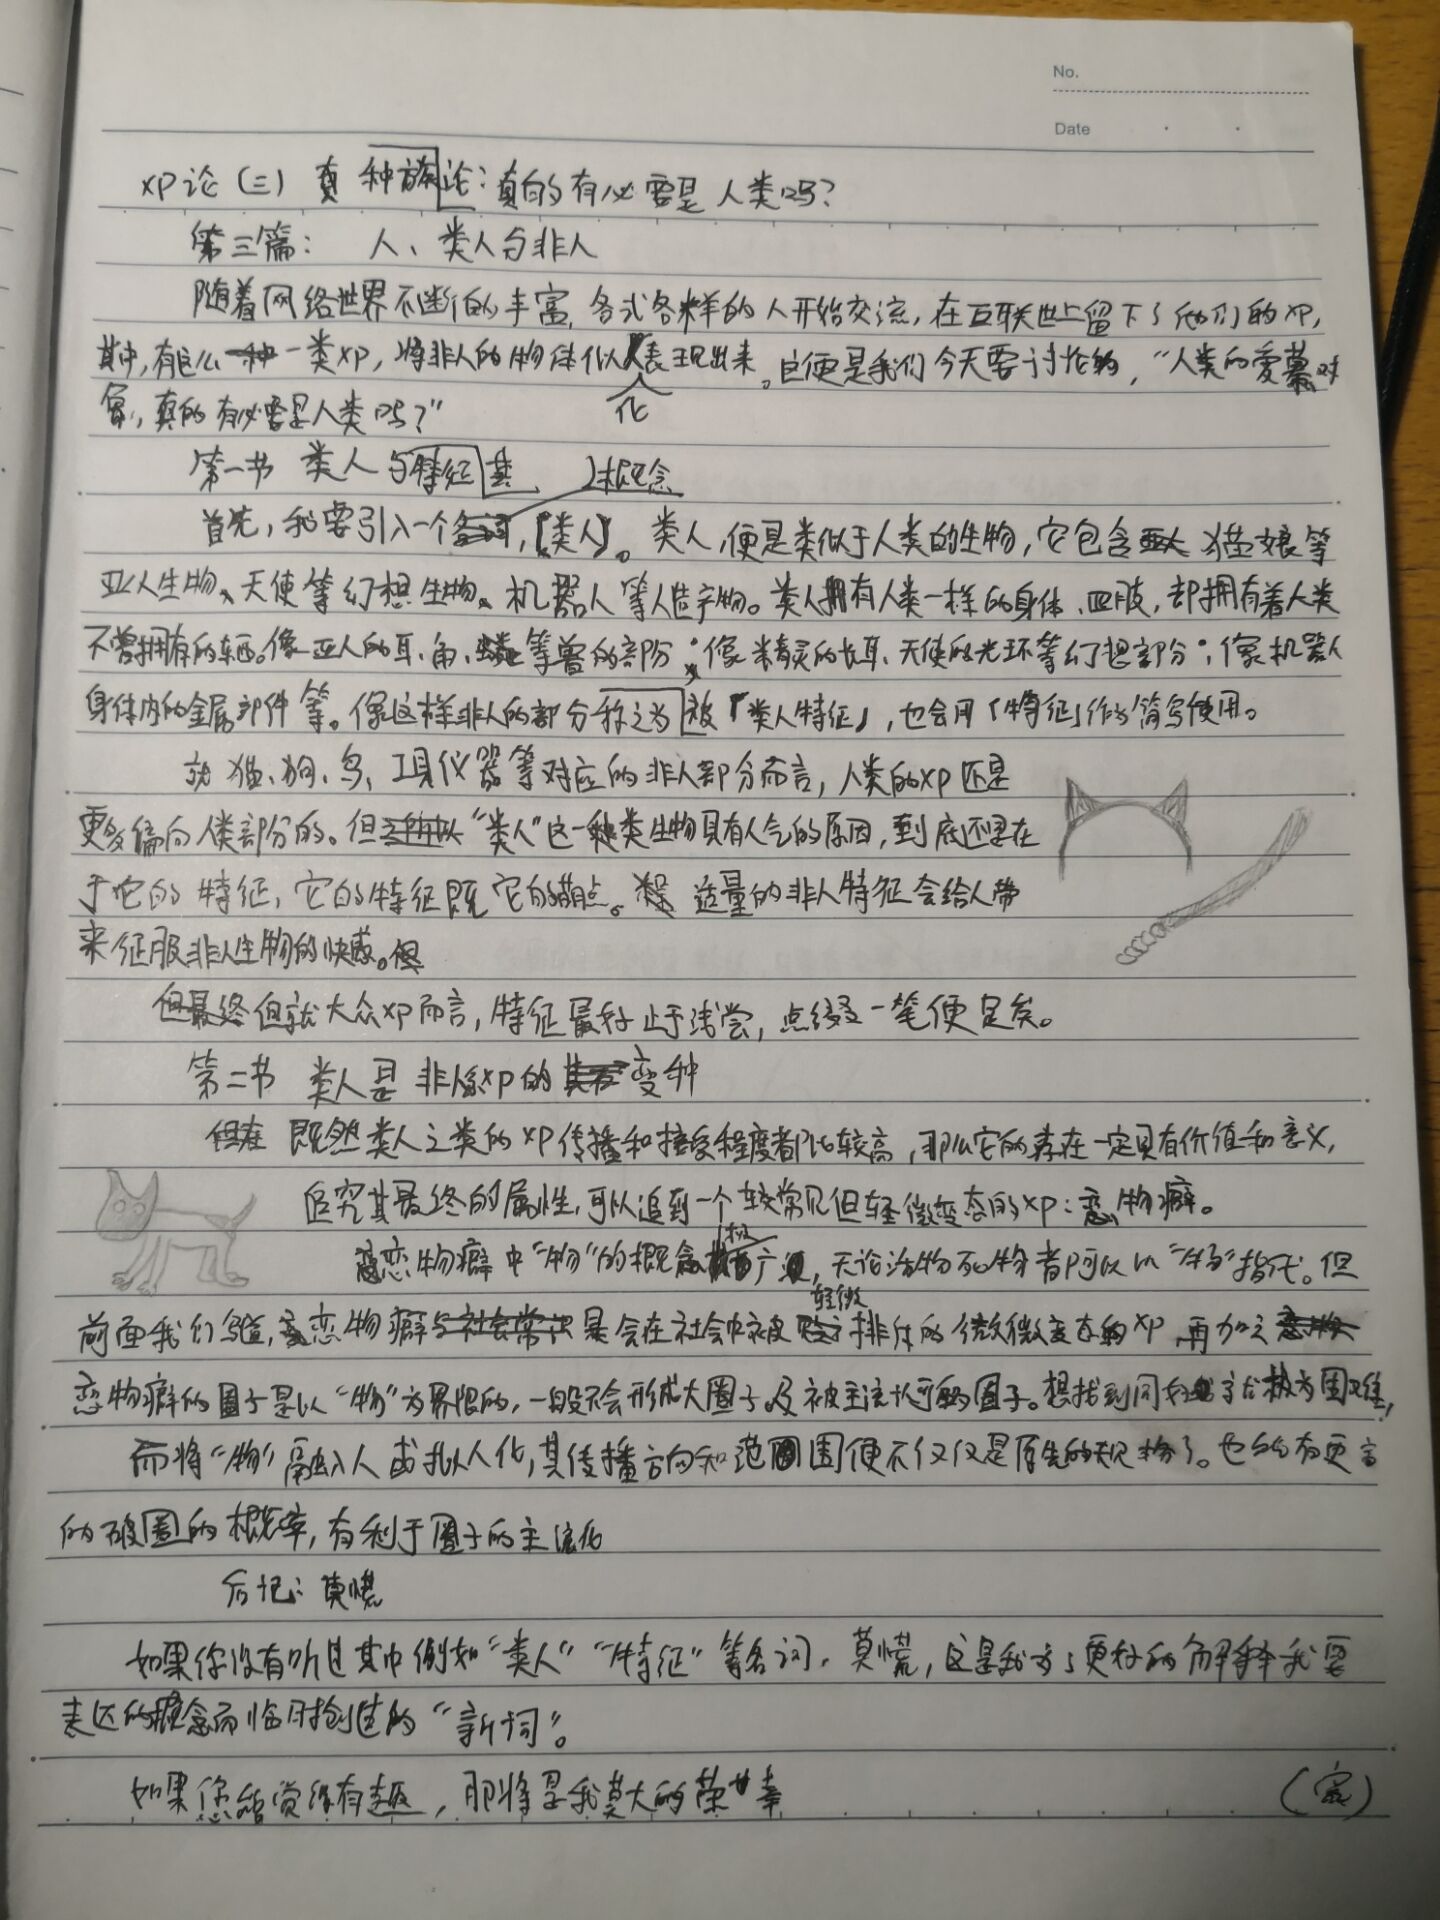 No.
Date
xp论(三) 真 种族论：真的有必要是人类吗？
第三篇： 人、类人与非人
随着网络世界不断的丰富，各式各样的人开始交流，在互联世上留下了他们的xp，
其中，有这么一类xp，将非人的物体似人化表现出来。这便是我们今天要讨论的，“人类的爱慕对
象，真的有必要是人类吗？”
第一节 类人与特征 概念
首先，我要引入一个概念，「类人」。类人，便是类似于人类的生物，它包含猫娘等
亚人生物、天使等幻想生物、机器人等人造产物。类人拥有人类一样的身体、四肢，却拥有着人类
不曾拥有的东西。像亚人的耳、角、等兽的部分；像精灵的长耳、天使的光环等幻想部分；像机器人
身体内的金属部件等。像这样非人的部分称之为被「类人特征」，也会用「特征」作为简写使用。
就猫、狗、鸟、工具仪器等对应的非人部分而言，人类的xp还是
更多偏向人类部分的。但“类人”这一种类生物具有人气的原因，到底还是在
于它的特征，它的特征既它的萌点。适量的非人特征会给人带
来征服非人生物的快感。
但就大众xp而言，特征最好止于浅尝，点缀一笔便足矣。
第二节 类人是非人系xp的变种
既然类人之类的xp传播和接受程度都比较高，那么它的存在一定具有价值和意义，
追究其最终的属性，可以追到一个较常见但轻微变态的xp：恋物癖。
恋物癖中“物”的概念极广，无论活物死物者都可以以“物”指代。但
前面我们写道，恋物癖是会在社会中被轻微排斥的微微变态的xp，再加之
恋物癖的圈子是以“物”为界限的，一般不会形成大圈子及被主流认可的圈子。想找到同好就极为困难，
而将“物”融入人或拟人化，其传播方向和范围便不仅仅是原先的规格了。也会有更高
的破圈的概率，有利于圈子的主流化
后记：莫慌
如果你没有听过其中例如“类人”“特征”等名词，莫慌，这是我为了更好的解释我要
表达的概念而临时创造的“新词”。
如果您能觉得有趣，那将是我莫大的荣幸
(完)